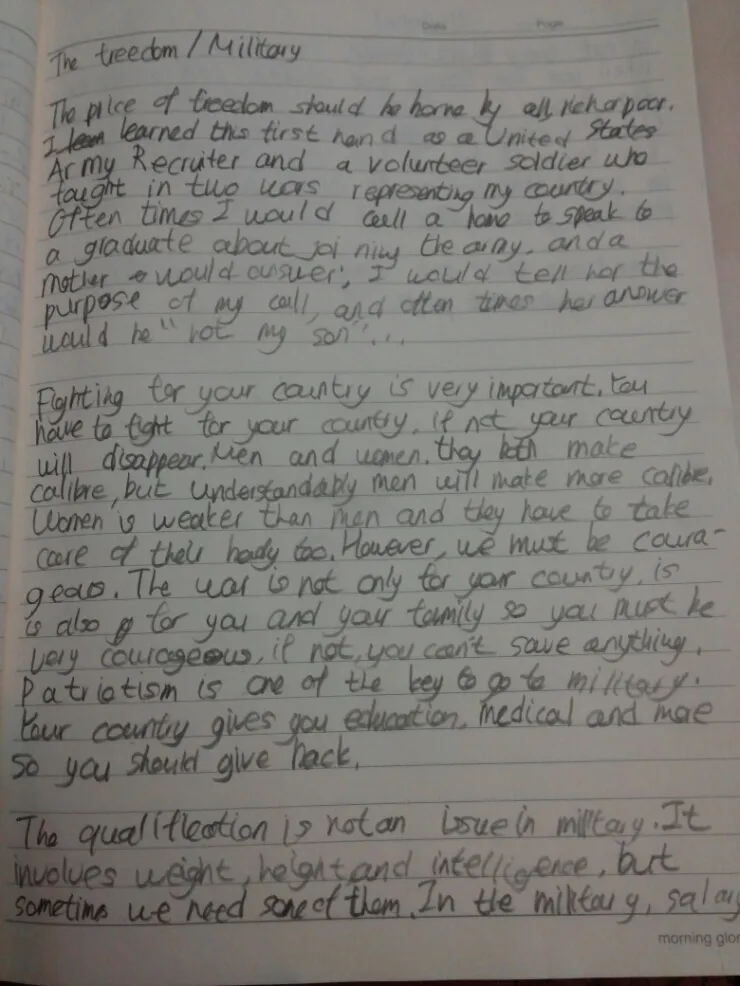 Date Page
The freedom / Military
The price of freedom should be borne by all, rich or poor.
I learned this first hand as a United States
Army Recruiter and a volunteer soldier who
fought in two wars representing my country.
Often times I would call a home to speak to
a graduate about joining the army, and a
mother would answer; I would tell her the
purpose of my call, and often times her answer
would be "not my son"...
Fighting for your country is very important. You
have to fight for your country, if not your country
will disappear. Men and women, they both make
calibre, but understandably men will make more calibre.
Women is weaker than men and they have to take
care of their body too. However, we must be coura-
geous. The war is not only for your country, is
is also for you and your family so you must be
very courageous, if not, you can't save anything.
Patriotism is one of the key to go to military.
Your country gives you education, medical and more
so you should give back.
The qualification is not an issue in military. It
involves weight, height and intelligence, but
sometime we need some of them. In the military, salary
morning glor